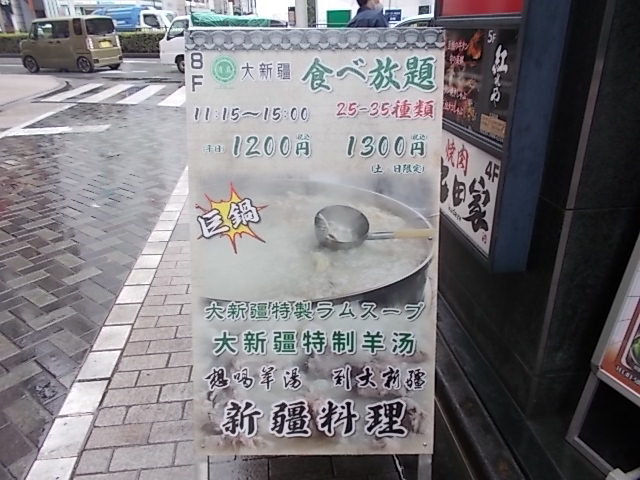 8F 大新疆 食べ放題
11:15～15:00 25-35種類
(平日) 1200円(税込) 1300円(税込)
(土 日限定)
巨鍋
大新疆特製ラムスープ
大新疆特制羊汤
想喝羊湯 到大新疆
新疆料理
5F
焼肉
4F